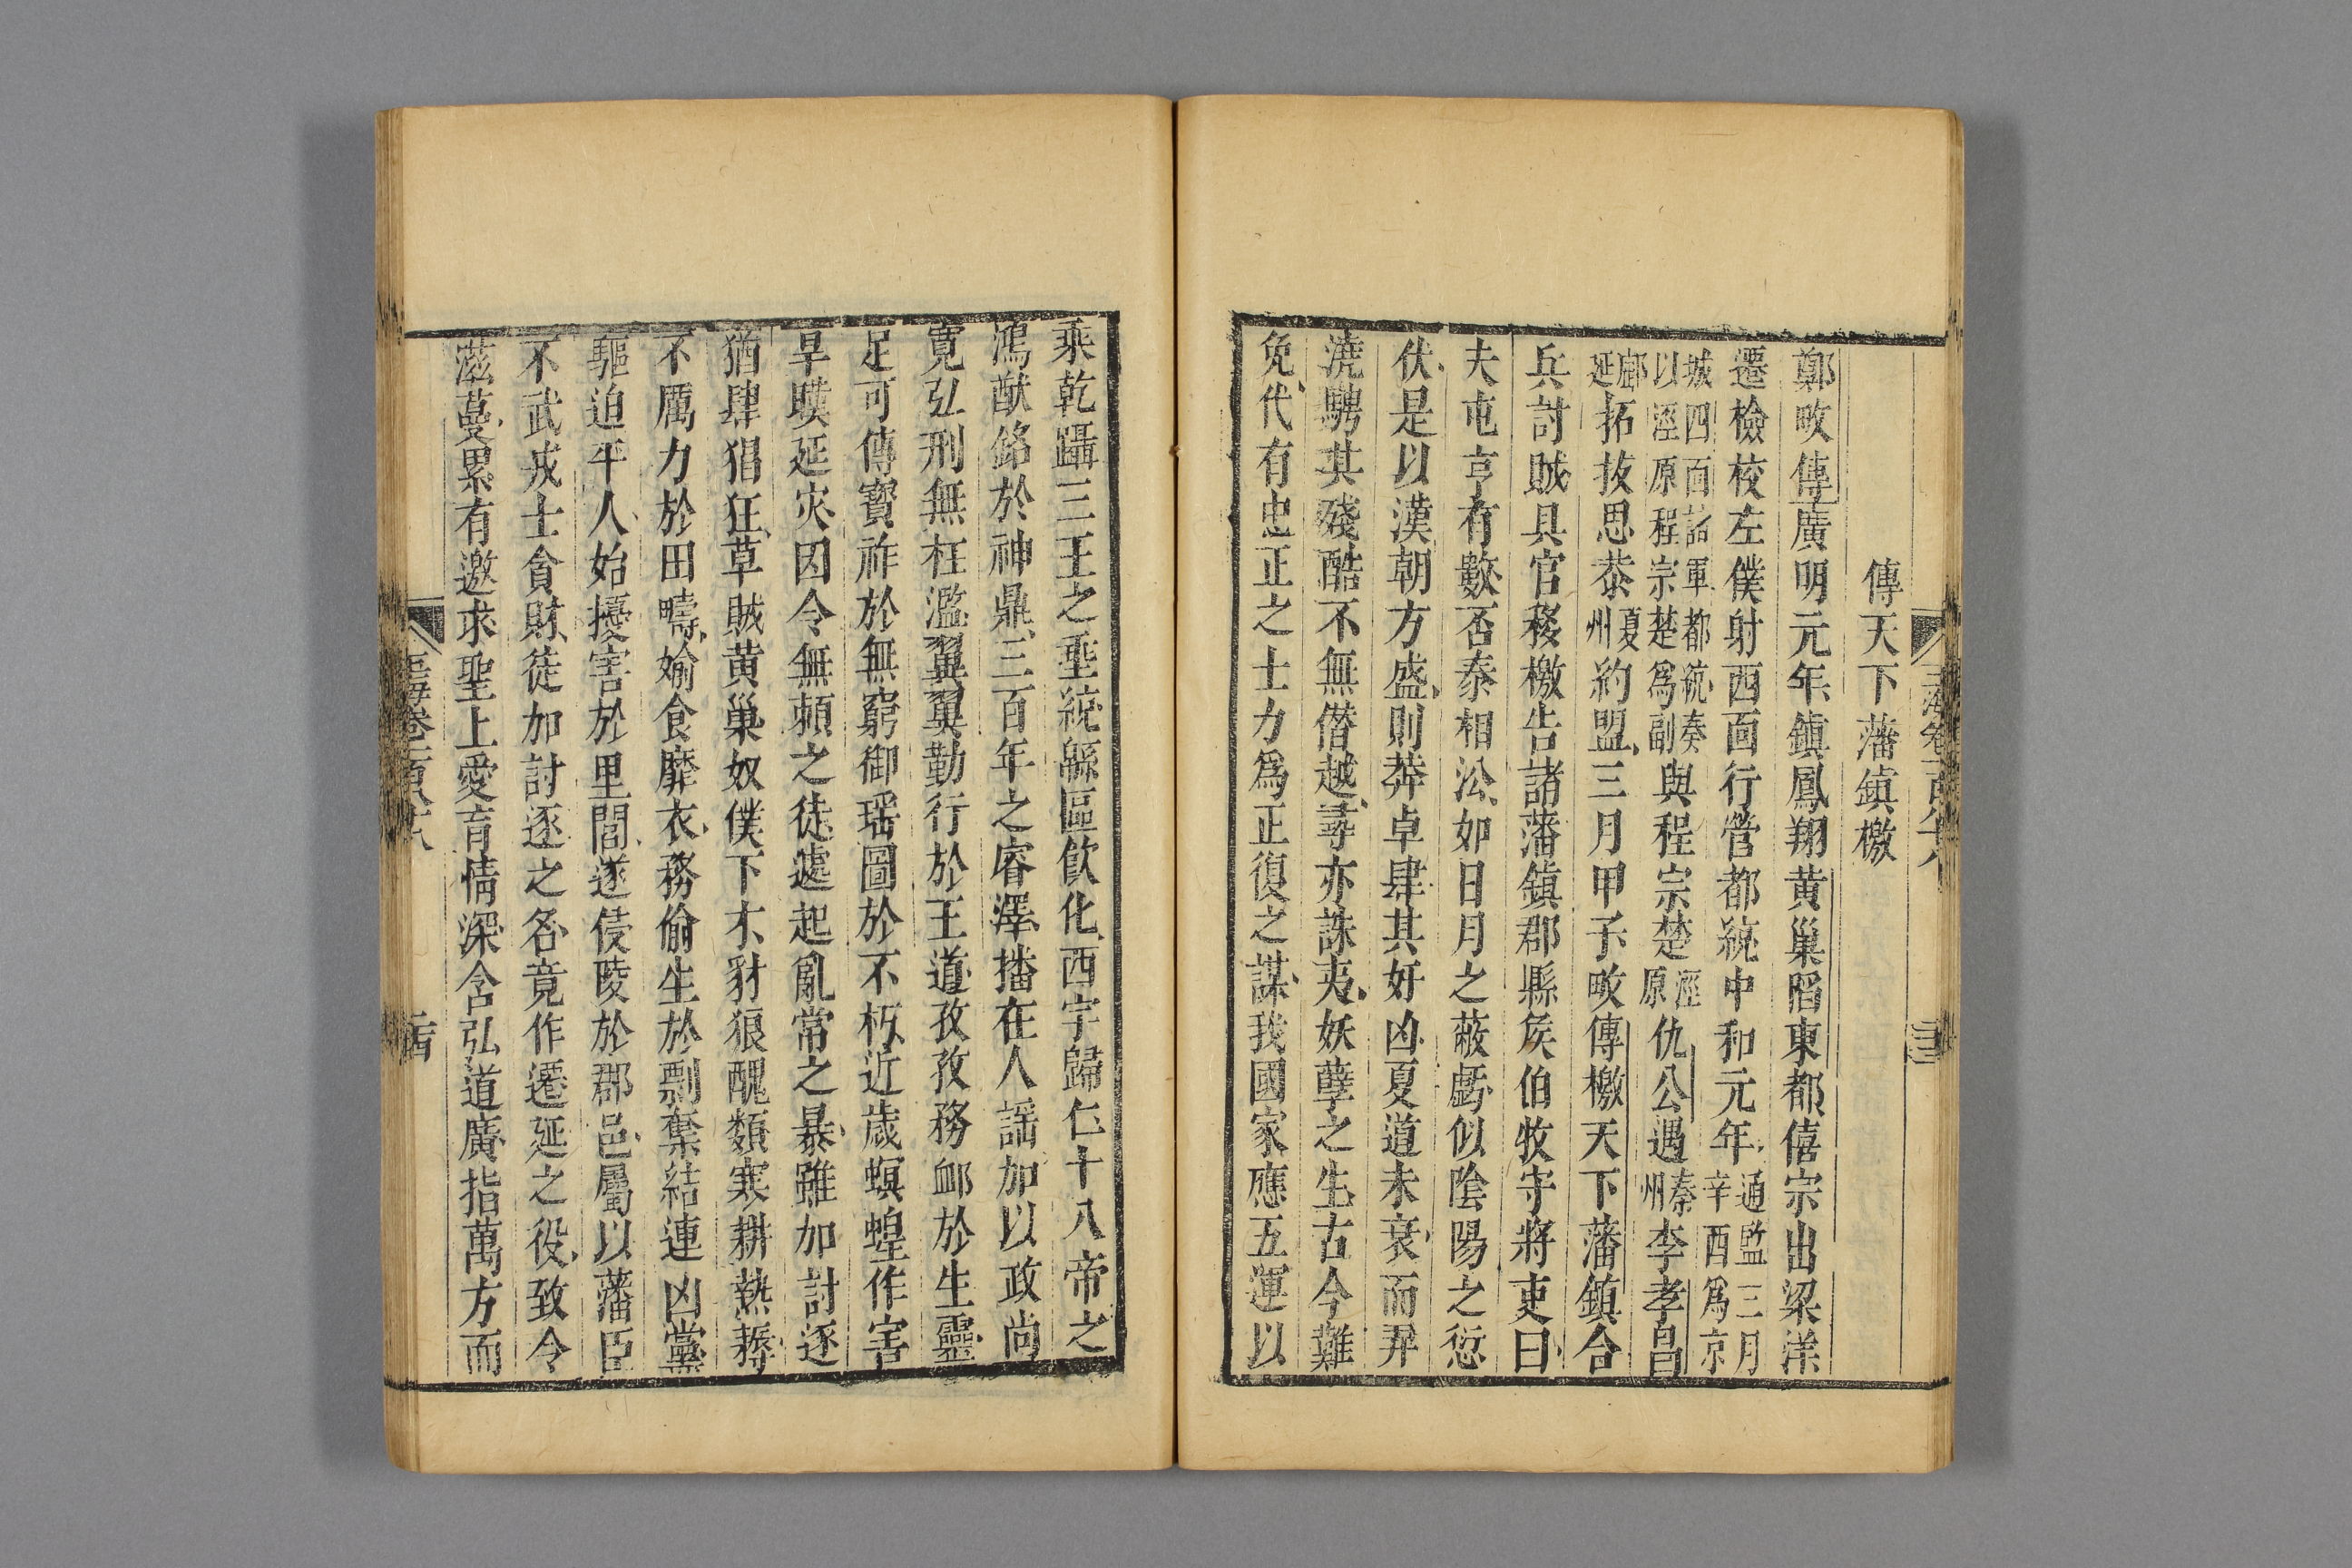 玉海卷二百八
二十三
傳天下藩鎮檄
鄭畋傳廣明元年鎮鳳翔黃巢䧟東都僖宗出梁洋
遷檢校左僕射西面行營都統中和元年通監三月辛酉為京
城四面諸軍都統奏以涇原程宗楚為副與程宗楚涇原仇公遇秦州李孝昌
鄜延拓抜思恭夏州約盟三月甲子畋傳檄天下藩鎮合
兵討賊具官移檄告諸藩鎮郡縣矦伯牧守將吏曰
夫屯亨有數否泰相㳂如日月之蔽虧似陰陽之愆
伏是以漢朝方盛則莽卓肆其奸凶夏道未衰而羿
澆騁其殘酷不無僭越尋亦誅夷妖孽之生古今難
免代有忠正之士力爲正復之謀我國家應五運以
乘乾躡三王之垂統緜區飲化西宇歸仁十八帝之
鴻猷銘於神鼎三百年之睿澤播在人謡加以政尚
寛弘刑無枉濫翼翼勤行於王道孜孜務䘏於生靈
足可傳寳祚於無窮御瑶圖於不朽近歲螟蝗作害
旱暵延灾因令無賴之徒遽起亂常之暴雖加討逐
猶肆猖狂草賊黄巢奴僕下才豺狼醜類寒耕熱耨
不厲力於田疇媮食靡衣務偷生於剽奪結連凶黨
驅迫平人始擾害於里閭遂侵陵於郡邑屬以藩臣
不武戎士貪財徒加討逐之名竟作遷延之役致令
滋蔓累有邀求聖上愛育情深含弘道廣指萬方而
玉海卷二百八
二十四